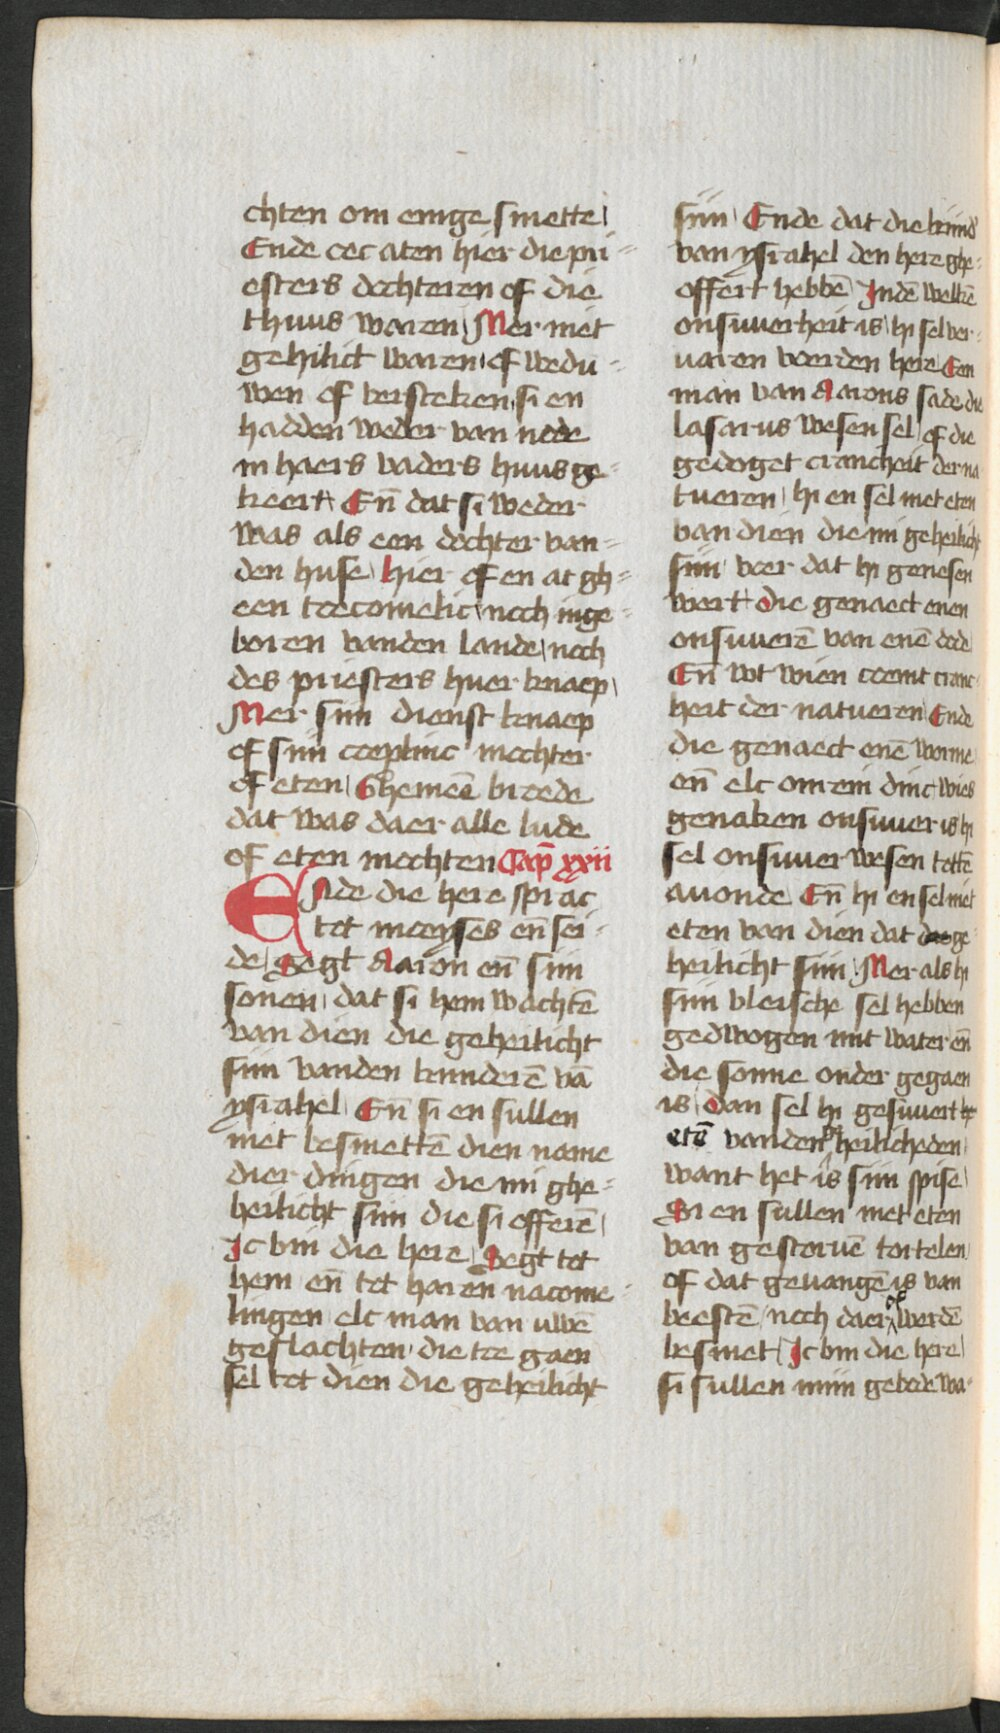 chten om enige smette
Ende oec aten hier die pri
esters dochteren of die
thuus waren Mer niet
gehilict waren of wedu
wen of versteken si en
hadden weder van node
in haers vaders huus ge
keert En̄ dat si weder
was als een dochter van
den huse hier of en at gh
een toecomelic noch inge
boren vanden lande noch
des priesters huer knaep
Mer sijn dienst knaep
of sijn coeplinc mochter
of eten Ghemeē broede
dat was daer alle lude
of eten mochten Cap̄ xxij
Ende die here sprac
tot moyses en̄ sei
de segt Aaron en̄ sijn
sonen dat si hem wachtē
van dien die geheilicht
sijn vanden kinderē vā
ysrahel En̄ si en sullen
niet besmettē dien name
dier dingen die mi ghe
heilicht sijn die si offerē
Ic bin die here Segt tot
hem en̄ tot haren nacome
lingen elc man van uwē
geslachten die toe gaen
sel tot dien die geheilicht
sijn Ende dat die kind'
van ysrahel den here ghe
offert hebbē Indē welkē
onsuuerheit is hi sel ver
uaren voer den here Een
man van Aarons sade die
lasarus wesen sel of die
gedoget crancheit der na
tueren hi en sel niet eten
van dien die mi geheilicht
sijn voer dat hi genesen
wert die genaect enen
onsuuerē van enē dode
En̄ wt wien coemt cranc
heit der natueren Ende
die genaect enē worme
en̄ elc onrein dinc wies
genaken onsuuer is hi
sel onsuuer wesen tottē
auonde En̄ hi en sel niet
eten van dien dat ge
heilicht sijn Mer als hi
sijn vleische sel hebben
gedwogen mit water en̄
die sonne onder gegaen
is dan sel hi gesuuert
etē vanden heilicheden
want het is sijn spise
Si en sullen niet eten
van gestoruē tortelen
of dat geuangē is van
beestē noch daer of werdē
besmet Ic bin die here
si sullen mijn gebode wa